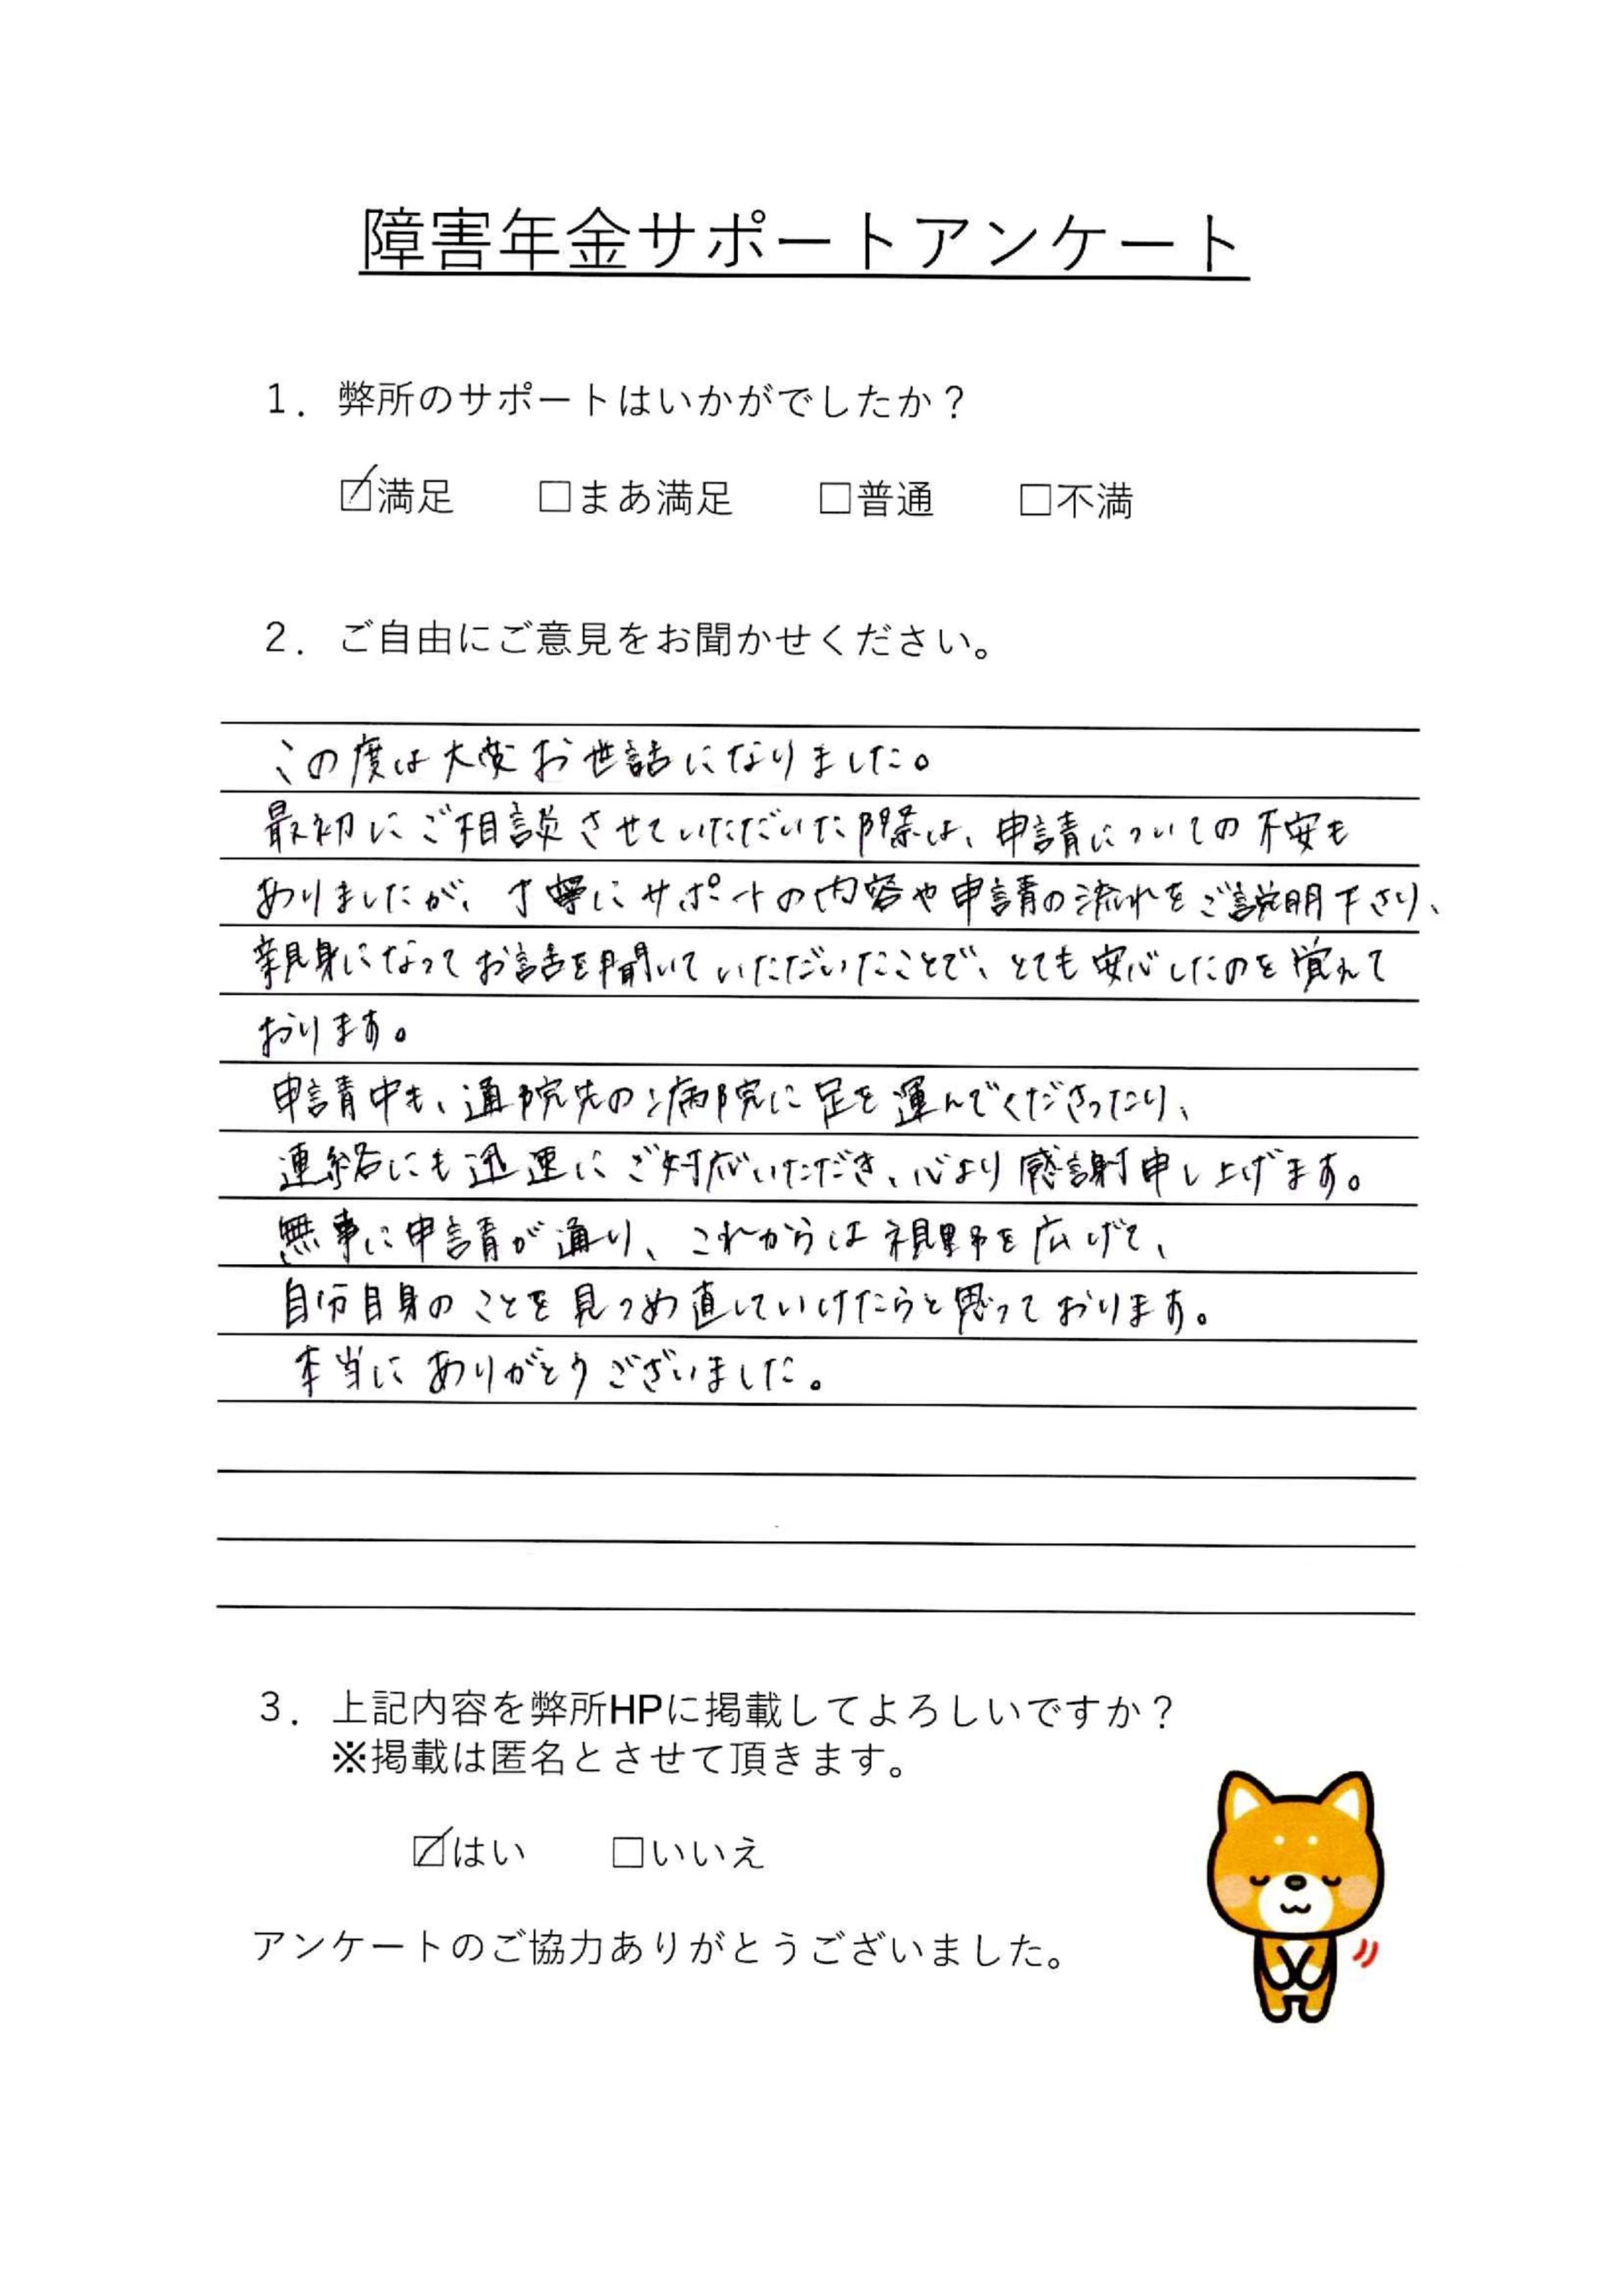 障害年金サポートアンケート
1. 弊所のサポートはいかがでしたか？
☑満足 □まあ満足 □普通 □不満
2. ご自由にご意見をお聞かせください。
この度は大変お世話になりました。
最初にご相談させていただいた際は、申請についての不安も
ありましたが、丁寧にサポートの内容や申請の流れをご説明下さり、
親身になってお話を聞いていただいたことで、とても安心したのを覚えて
おります。
申請中も、通院先の病院に足を運んでくださったり、
連絡にも迅速にご対応いただき、心より感謝申し上げます。
無事に申請が通り、これからは視野を広げて、
自分自身のことを見つめ直していけたらと思っております。
本当にありがとうございました。
3. 上記内容を弊所HPに掲載してよろしいですか？
※掲載は匿名とさせて頂きます。
☑はい □いいえ
アンケートのご協力ありがとうございました。